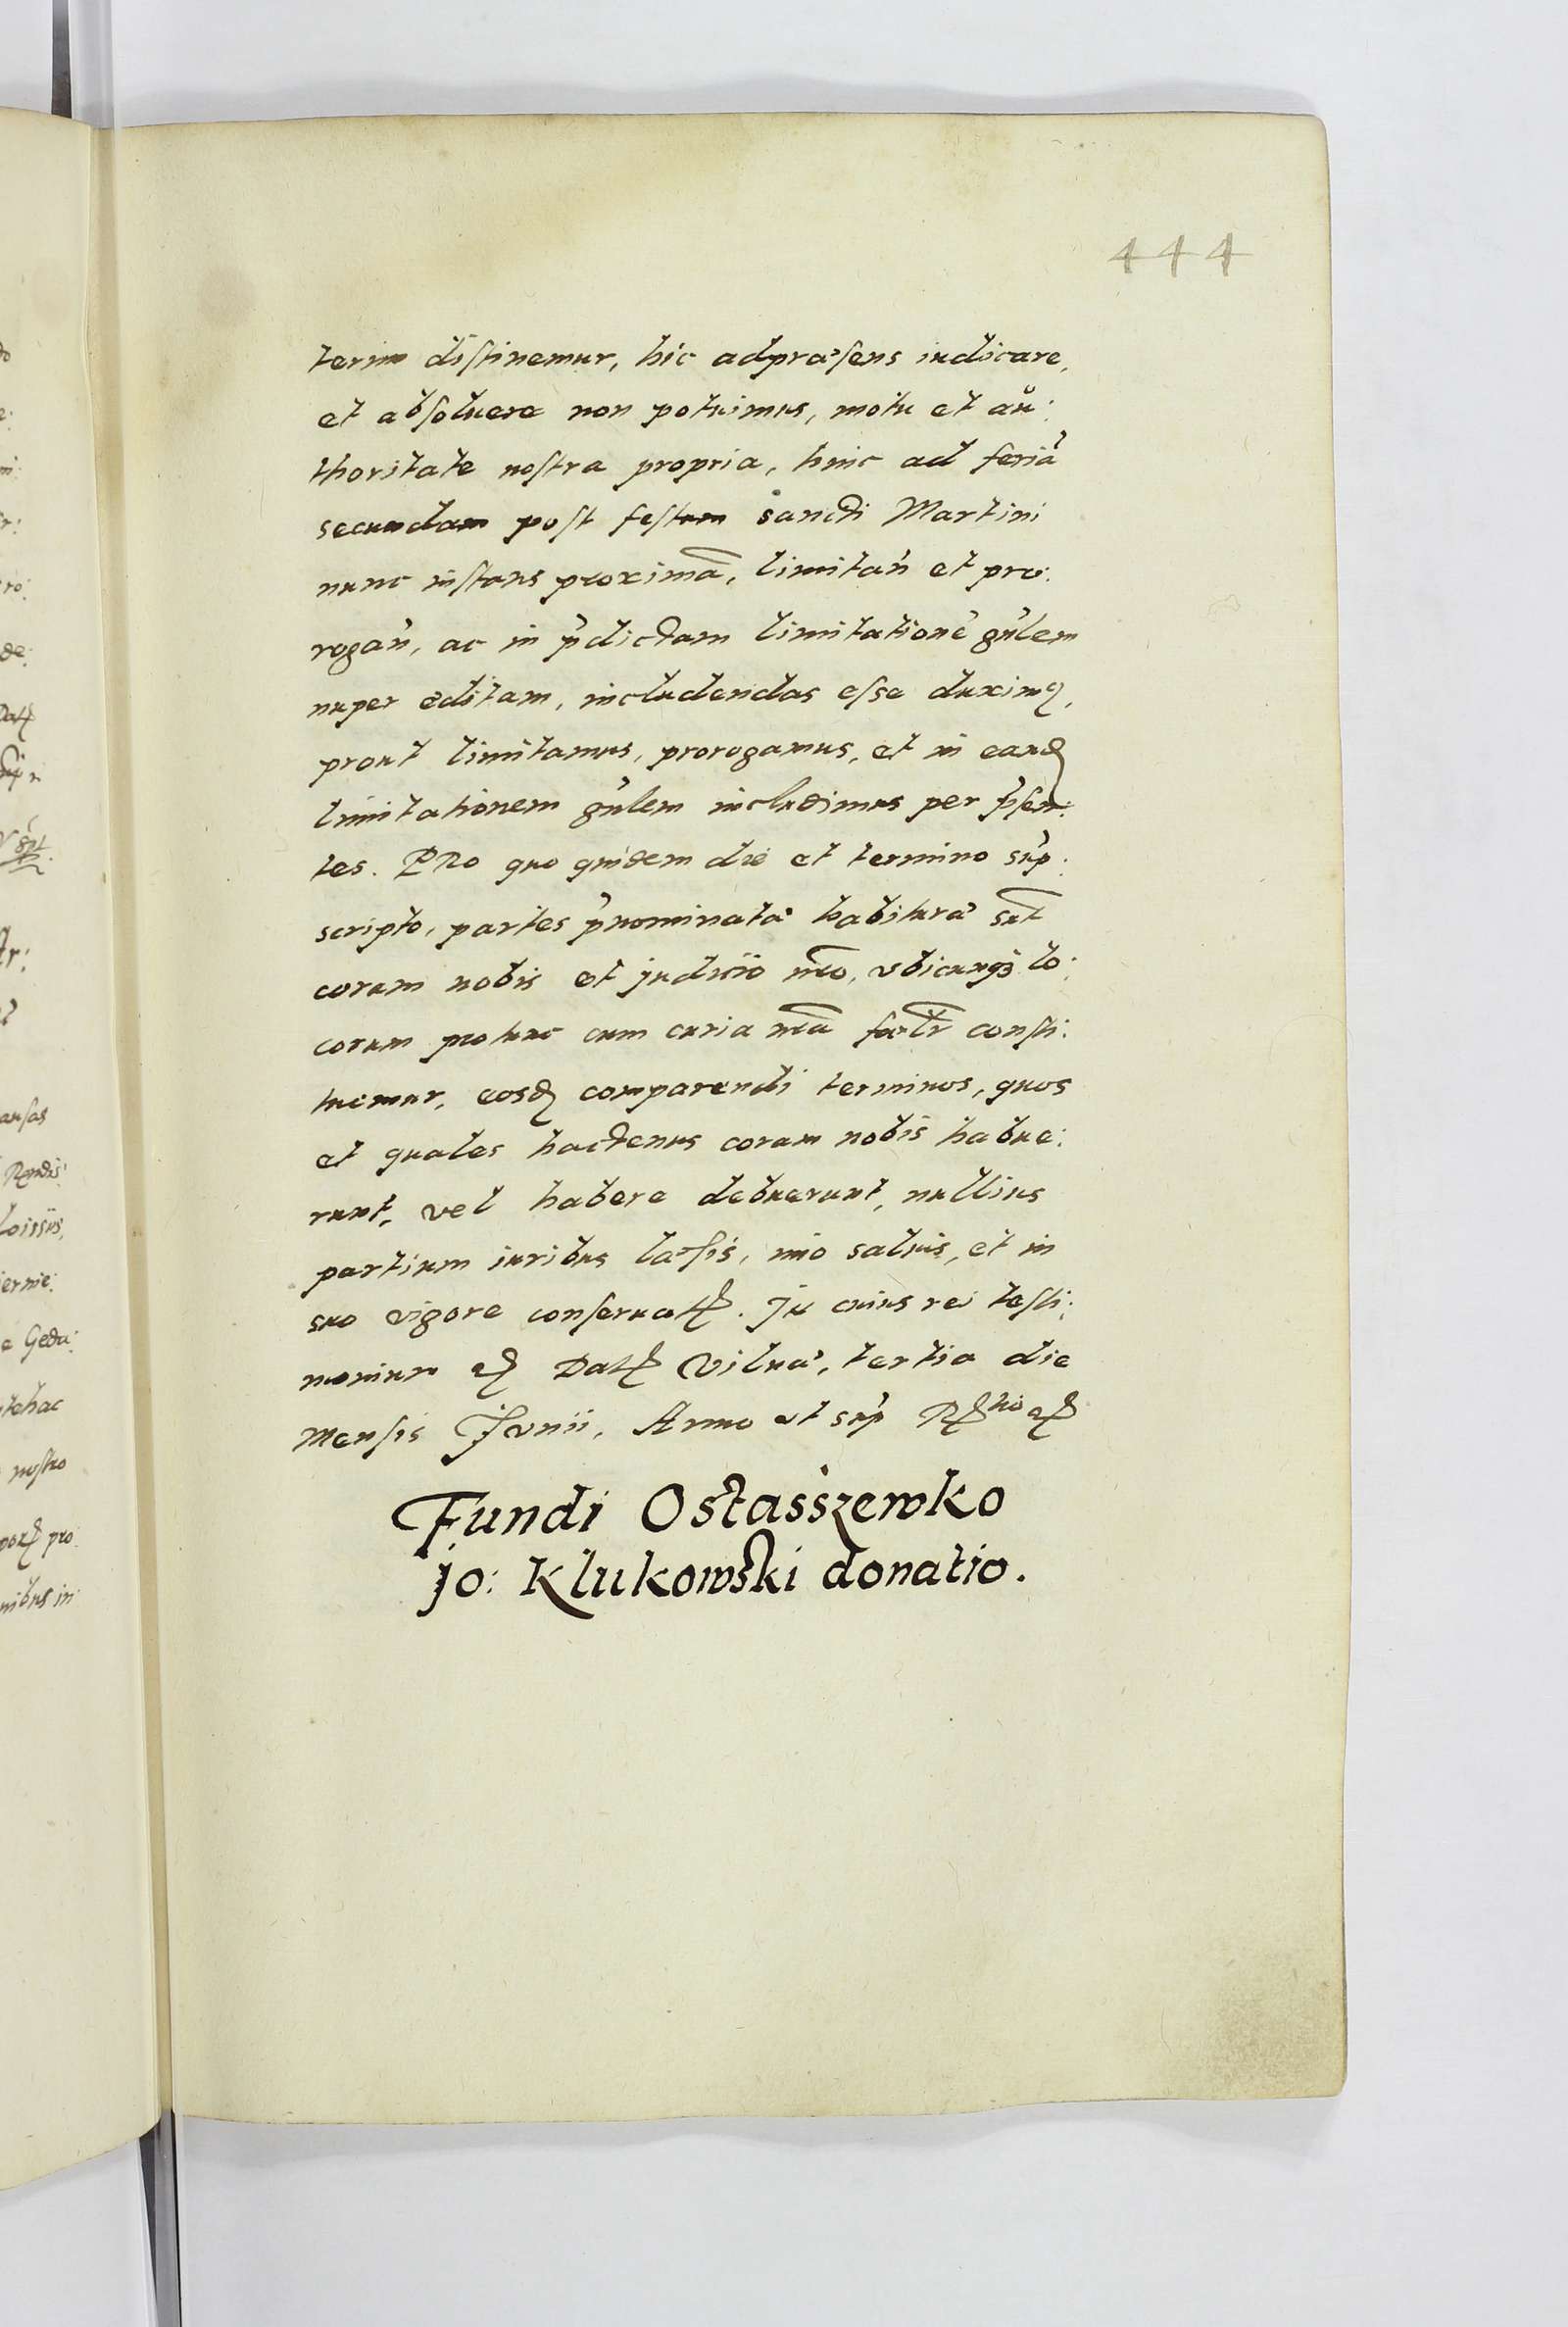 444
terim distinemur, hic adpræsens iudicare,
et absoluere non potuimus, motu et au:
thoritate nostra propria, huic ad feriã
secundam post festum sancti Martini
nunc instans proximã, limitañ et pro:
rogañ, ac in p̃dictam limitationẽ gñlem
nuper editam, includendas esse duximꝰ,
prout limitamus, prorogamus, et in eand
limitationem gñlem includimus per p̃sen:
tes. PRo quo quidem die et termino sup̃:
scripto, partes p̃nominatæ habituræ sũt
coram nobis et judicio ñro, vbicunqꝫ lo:
corum protunc cum curia ñra fœlr̃ consti:
tuemur, eosd comparendi terminos, quos
et quales hactenus coram nobis habue:
runt, vel habere debuerunt, nullius
partium iuribus læsis, imo saluis, et in
suo vigore conseruatꝭ. In cuius rei testi:
monium ꝛꝭ Datꝭ Vilnæ, tertia die
Mensis Junii, Anno ut sup̃ Rꝭ nõ ꝛꝭ
Fundi Ostasszewko
jo: Klukowski donatio.